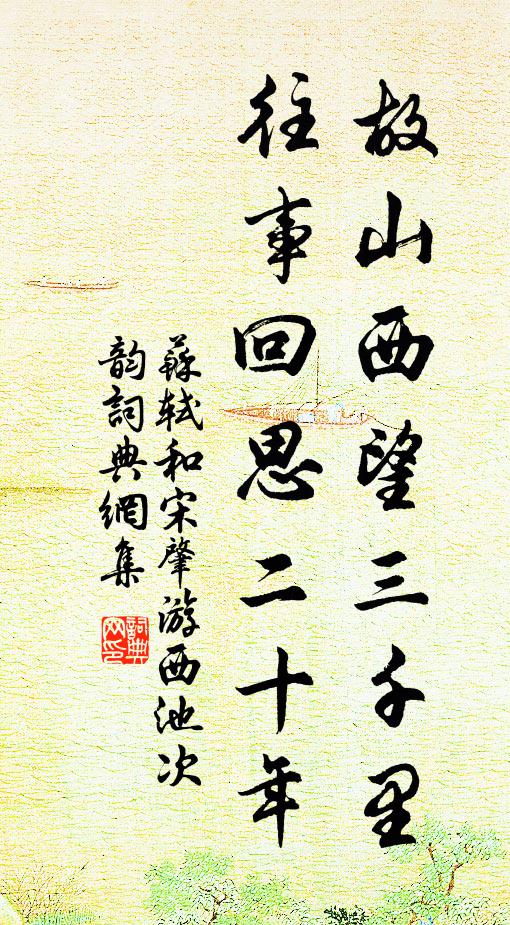 故山西望三千里
往事回思二十年
蘇軾和宋肇游西池次
韵詞典網集
詞典
网印